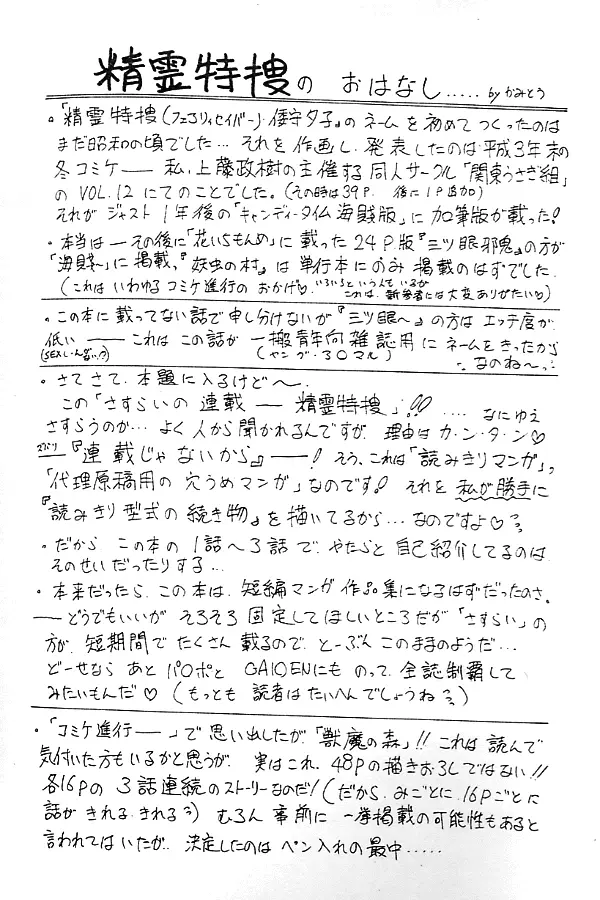 精霊特捜の おはなし.....byかみとう
・「精霊特捜(フェアリィセイバー)倭守夕子」のネームを初めてつくったのは
まだ昭和の頃でした… それを作画し、発表したのは平成3年末の
冬コミケ── 私、上藤政樹の主催する同人サークル「関東うさぎ組」
のVOL.12にてのことでした。(その時は39P. 後に1P追加)
それがジャスト1年後の「キャンディータイム海賊版」に加筆版が載った!
・本当は─その後に「花いちもんめ」に載った24P版『三ツ眼邪鬼』の方が
「海賊〜」に掲載、『妖虫の村』は単行本にのみ掲載のはずでした.
(これはいわゆるコミケ進行のおかげ♡ いろいろという人もいるが これは、新参者には大変ありがたい♡)
・この本に載ってない話で申し分けないが『三ツ眼〜』の方はエッチ度が
低い ── これはこの話が一搬青年向雑誌用にネームをきったから
(SEXしーんが1つ) (ヤング・30マル) …なのね〜…?
・さてさて、本題に入るけど〜.
この「さすらいの連載 ─ 精霊特捜」!! .... なにゆえ
さすらうのか… よく人から聞かれるんですが、理由はカ・ン・タ・ン♡
ズバリ『連載じゃないから』──! そう、これは「読みきりマンガ」、
「代理原稿用の穴うめマンガ」なのです! それを私が勝手に
『読みきり型式の続き物』を描いてるから… なのですよ♡?
・だから この本の1話〜3話で、やたらと自己紹介してるのは
そのせいだったりする…
・本来だったら、この本は、短編マンガ作品集になるはずだったのさ。
──どうでもいいが そろそろ固定してほしいところだが「さすらい」の
方が、短期間でたくさん載るので、とーぶんこのままのようだ…
どーせならあとパロポとGAIDENにものって、全誌制覇して
みたいもんだ♡ (もっとも読者はたいへんでしょうね?)
・「コミケ進行──」で思い出したが、「獣魔の森」!! これは読んで
気付いた方もいるかと思うが、実はこれ、48Pの描きおろしではない!!
各16Pの3話連続のストーリーなのだ! (だから、みごとに、16Pごとに
話がきれる、きれる?) むろん事前に一挙掲載の可能性もあると
言われてはいたが、決定したのはペン入れの最中.....